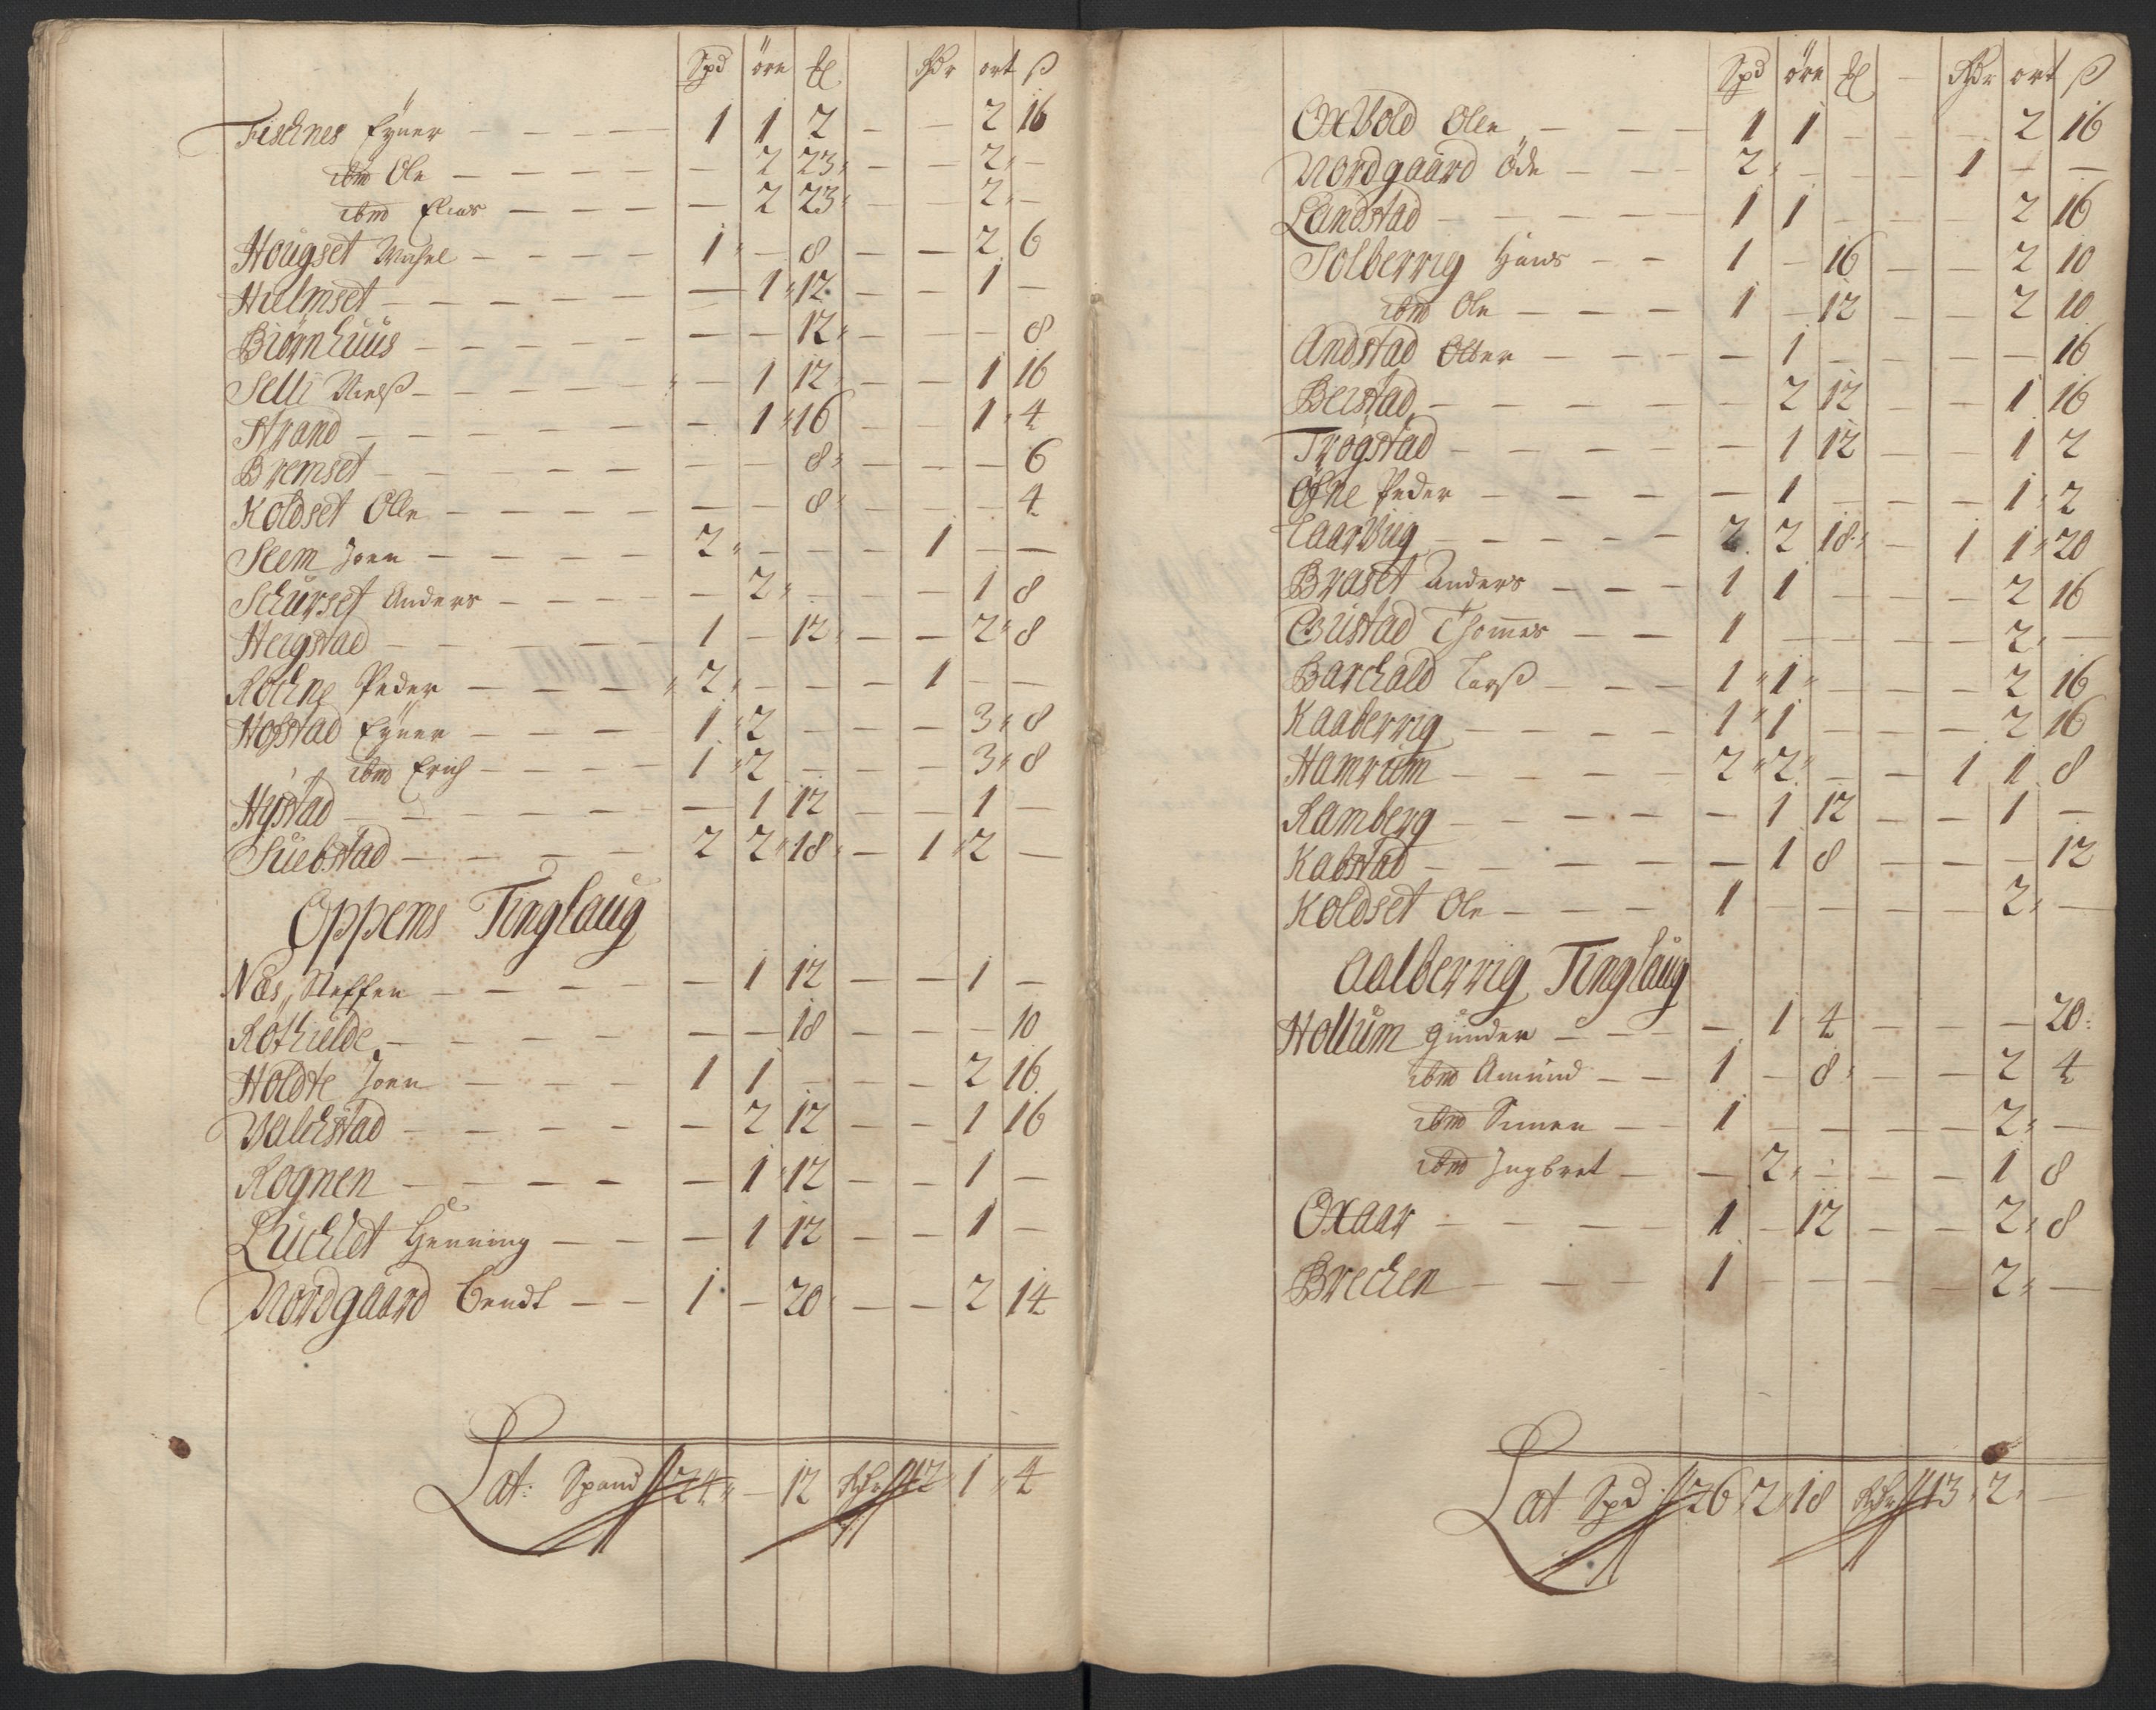 Spd öre ℔ Rdr ort ß
Fischnes Eÿner — 1 1 2 — — 2 16
ibm Ole — — 2 23 — — 2 —
ibm Elias — — 2 23 — — 2 —
Hougset Michel — 1 — 8 — — 2 6
Hielmset — — 1 12 — — 1 —
Biörnhuus — — — 12 — — — 8
Selli Nielß — — 1 12 — — 1 16
Strand — — 1 16 — — 1 4
Bremset — — — 8 — — — 6
Koldset Olle — — — 8 — — — 4
Seem Joen — 2 — — — 1 — —
Schurset Anders — — 2 — — — 1 8
Hergstad — 1 — 12 — — 2 8
Rochne Peder — 2 — — — 1 — —
Hofstad Eÿner — 1 2 — — — 3 8
ibm Erich — 1 2 — — — 3 8
Hÿstad — — 1 12 — — 1 —
Suebstad — 2 2 18 — 1 2 —
Oppems Tinglaug
Næs, Steffen — — 1 12 — — 1 —
Rothielde — — — 18 — — — 10
Holdte Joen — 1 1 — — — 2 16
Walchstad — — 2 12 — — 1 16
Rognen — — 1 12 — — 1 —
Luchlet Henning — — 1 12 — — 1 —
Nordgaard Bendt — 1 — 20 — — 2 14
Lat: Spand 24 — 12 Rdr 12 1 4
Spd öre ℔ — Rdr ort ß
Oxvold Olle — 1 1 — — — 2 16
Nordgaard öde — 2 — — — 1 — —
Landstad — 1 1 — — — 2 16
Solberrig Hans — 1 — 16 — — 2 10
ibm Ole — 1 — 12 — — 2 10
Andstad Olter — — 1 — — — — 16
Beistad — — 2 12 — — 1 16
Trogstad — — 1 12 — — 1 2
Ofne Peder — — 1 — — — 1 2
Laarviig — 2 2 18 — 1 1 20
Braset Anders — 1 1 — — — 2 16
Bustad Thommes — 1 — — — — 2 —
Barchald Larß — 1 1 — — — 2 16
Kaaberrig — 1 1 — — — 2 16
Hamrum — 2 2 — — 1 1 8
Ramberg — — 1 12 — — 1 —
Kabstad — — 1 8 — — — 12
Koldset Ole — 1 — — — — 2 —
Aalberrig Tinglaug
Hollum Gunder — — 1 4 — — 20
ibm Amund — 1 — 8 — — 2 4
ibm Simen — 1 — — — — 2 —
ibm Ingbret — — 2 — — — 1 8
Oxaar — 1 — 12 — — 2 8
Brechen — 1 — — — — 2 —
Lat Spd 26 2 18 Rdr 13 2 —